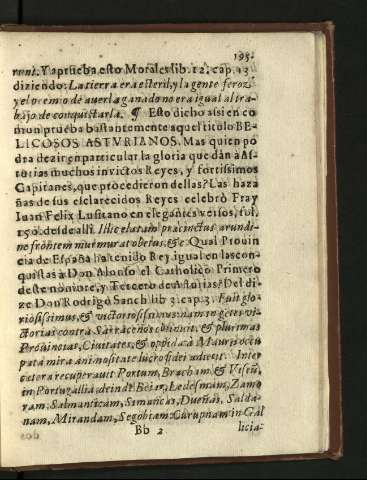 195.
runt. Y aprueba esto Morales lib. 12. cap. 13
diziendo: La tierra era esteril, y la gente feroz
y el premio de averla ganado no era igual al tra-
bajo de conquistarla. ¶ Esto dicho assi en co
mun prueba bastantemente aquel titulo BE-
LICOSOS ASTURIANOS. Mas quien po
dra dezir en particular la gloria que dàn à As-
turias muchos invictos Reyes, y fortissimos
Capitanes, que procedieron dellas? Las haza
ñas de sus esclarecidos Reyes celebrò Fray
Iuan Felix Lusitano en elegantes versos, fol.
150. desde alli.
ne frontem murmurat &c. Qual Provin
cia de España ha tenido Rey igual en las con-
quistas à Don Alonso el Catholico Primero
deste nombre, y Tercero de Asturias? Del di-
ze Don Rodrigo Sanch. lib 3. cap. 3. Fuit glo
riosissimus, & victoriosissimus, nam ingetes vic
torias contra Sarracenos obtinuit, & plurimas
Provincias, Civitates, & oppida à Mauris occu
pata mira animositate Inter
cætera recuperavit Portum, Bracham & Viseũ,
in Portugallia, deinde Bejar, Ledesmam, Zamo
ram, Salmanticam, Simancas, Dueñas, Salda-
nam, Mirandam, Segobiam: Curupnam in Gal
Bb 2
licia: